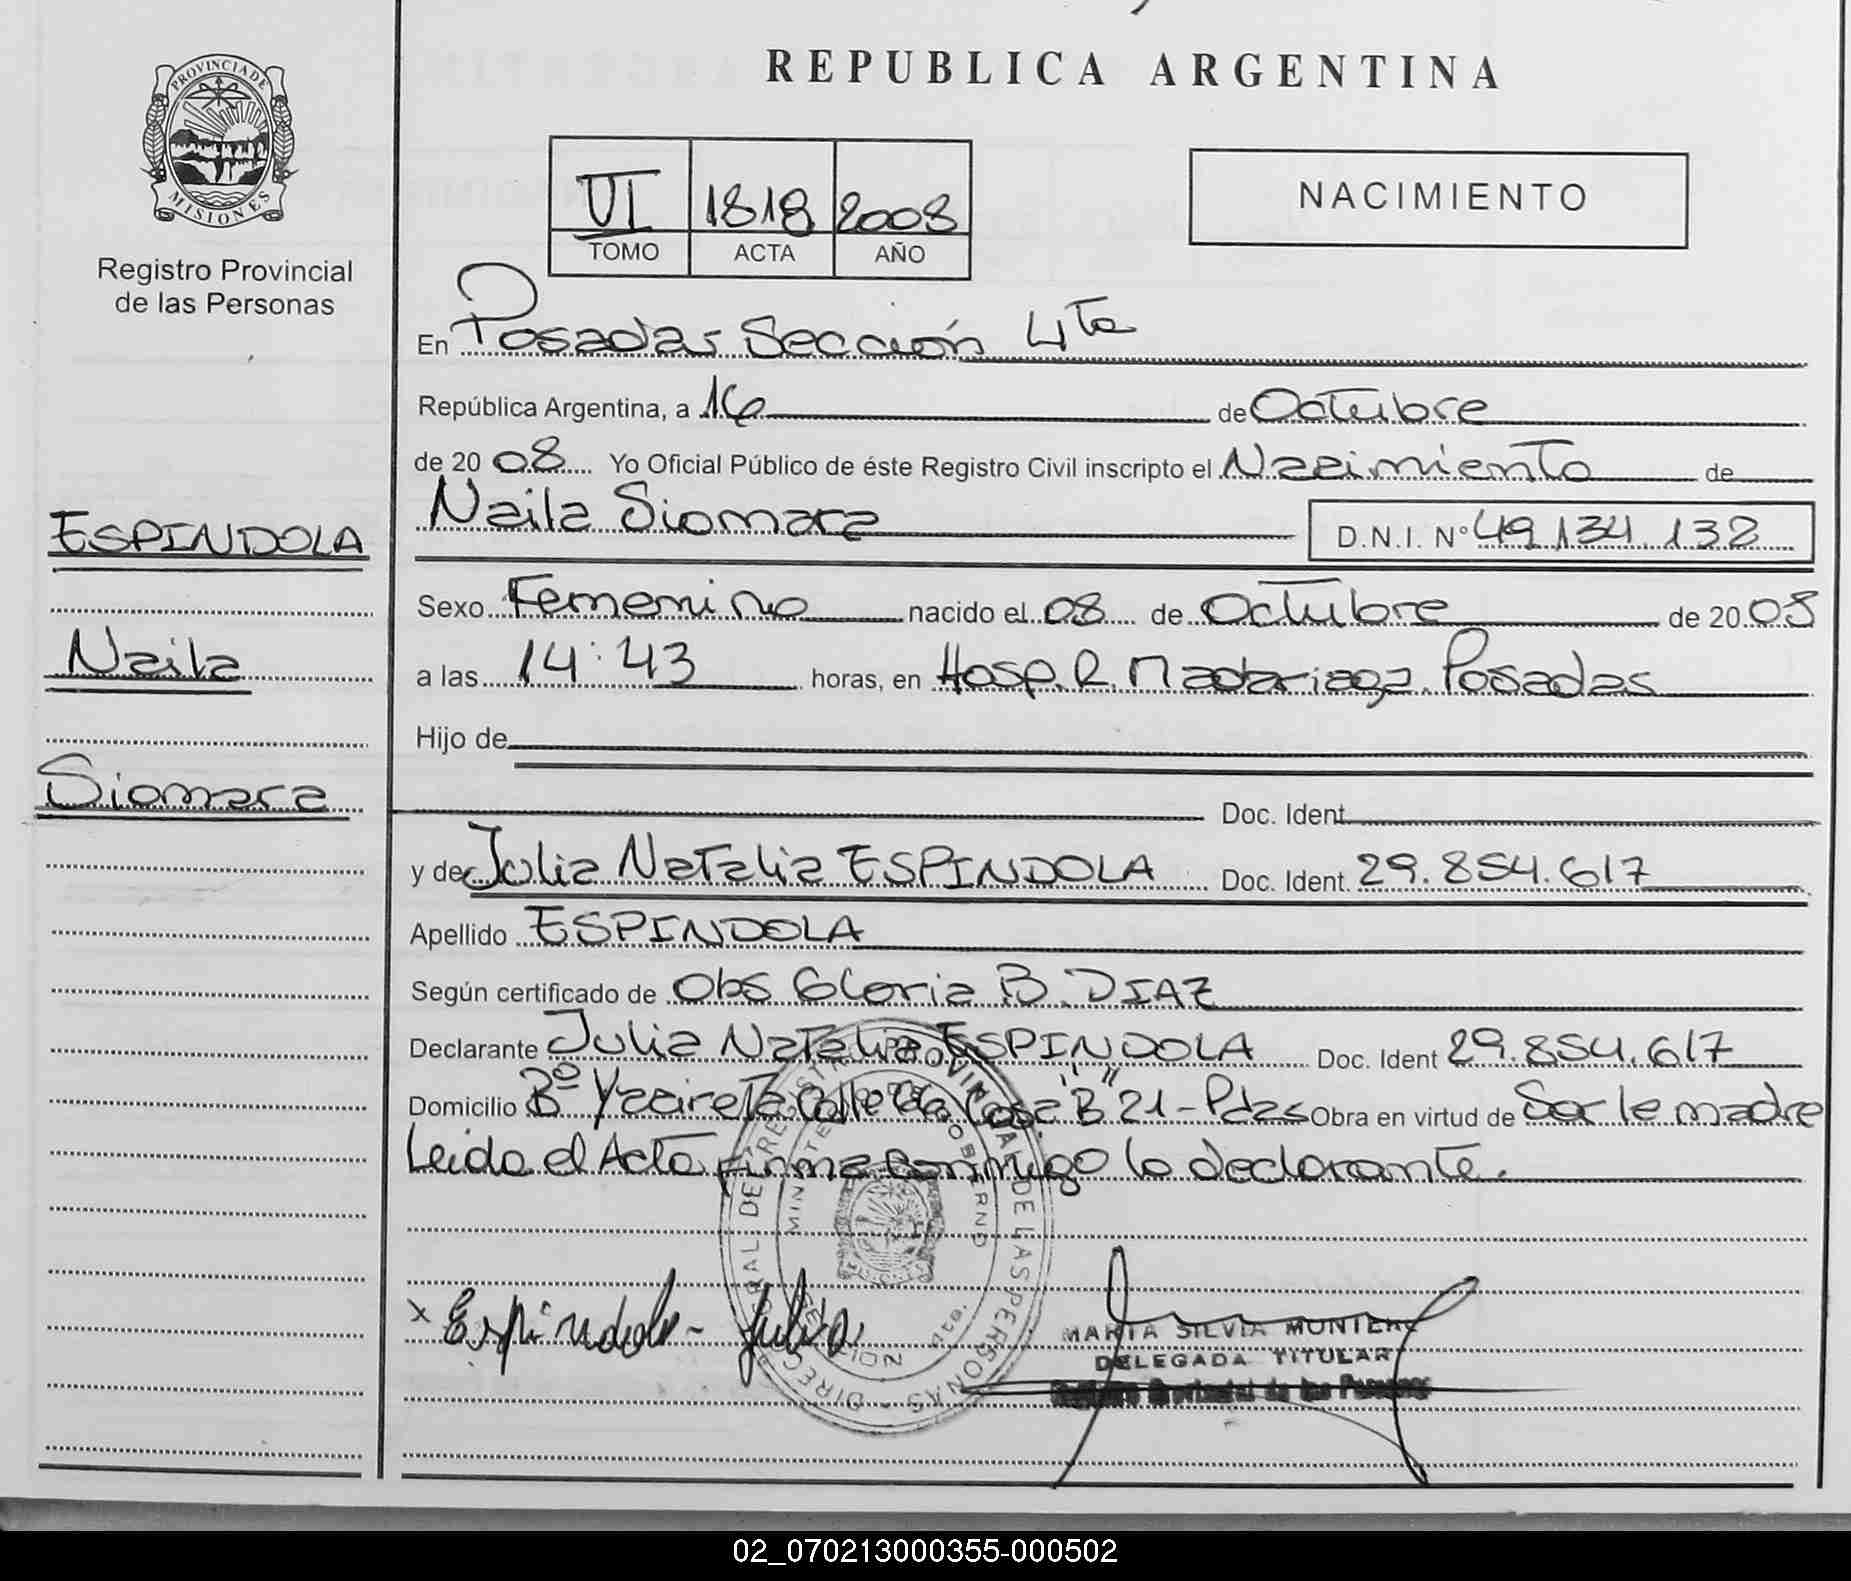 REPUBLICA ARGENTINA
PROVINCIA DE
MISIONES
Registro Provincial
de las Personas
VI 1818 2008
TOMO ACTA AÑO
NACIMIENTO
En Posadas Sección 4ta
República Argentina, a 16 de Octubre
de 20 08 Yo Oficial Público de éste Registro Civil inscripto el Nacimiento de
Naila Siomara D.N.I. Nº 49.134.132
ESPINDOLA
Naila
Siomara
Sexo Femenino nacido el 08 de Octubre de 20 08
a las 14:43 horas, en Hosp. R. Madariaga. Posadas
Hijo de
Doc. Ident.
y de Julia Natalia ESPINDOLA Doc. Ident. 29.854.617
Apellido ESPINDOLA
Según certificado de Obs Gloria B. DIAZ
Declarante Julia Natalia ESPINDOLA Doc. Ident 29.854.617
Domicilio Bº Yacireta Calle Casa "B" 21 - Pdas Obra en virtud de Ser la madre
Leida el Acta firma conmigo la declarante.
x Espindola - Julia
MARIA SILVIA
DELEGADA TITULAR
Registro Provincial de las Personas
DIRECCION GENERAL DEL REGISTRO PROVINCIAL DE LAS PERSONAS
02_070213000355-000502